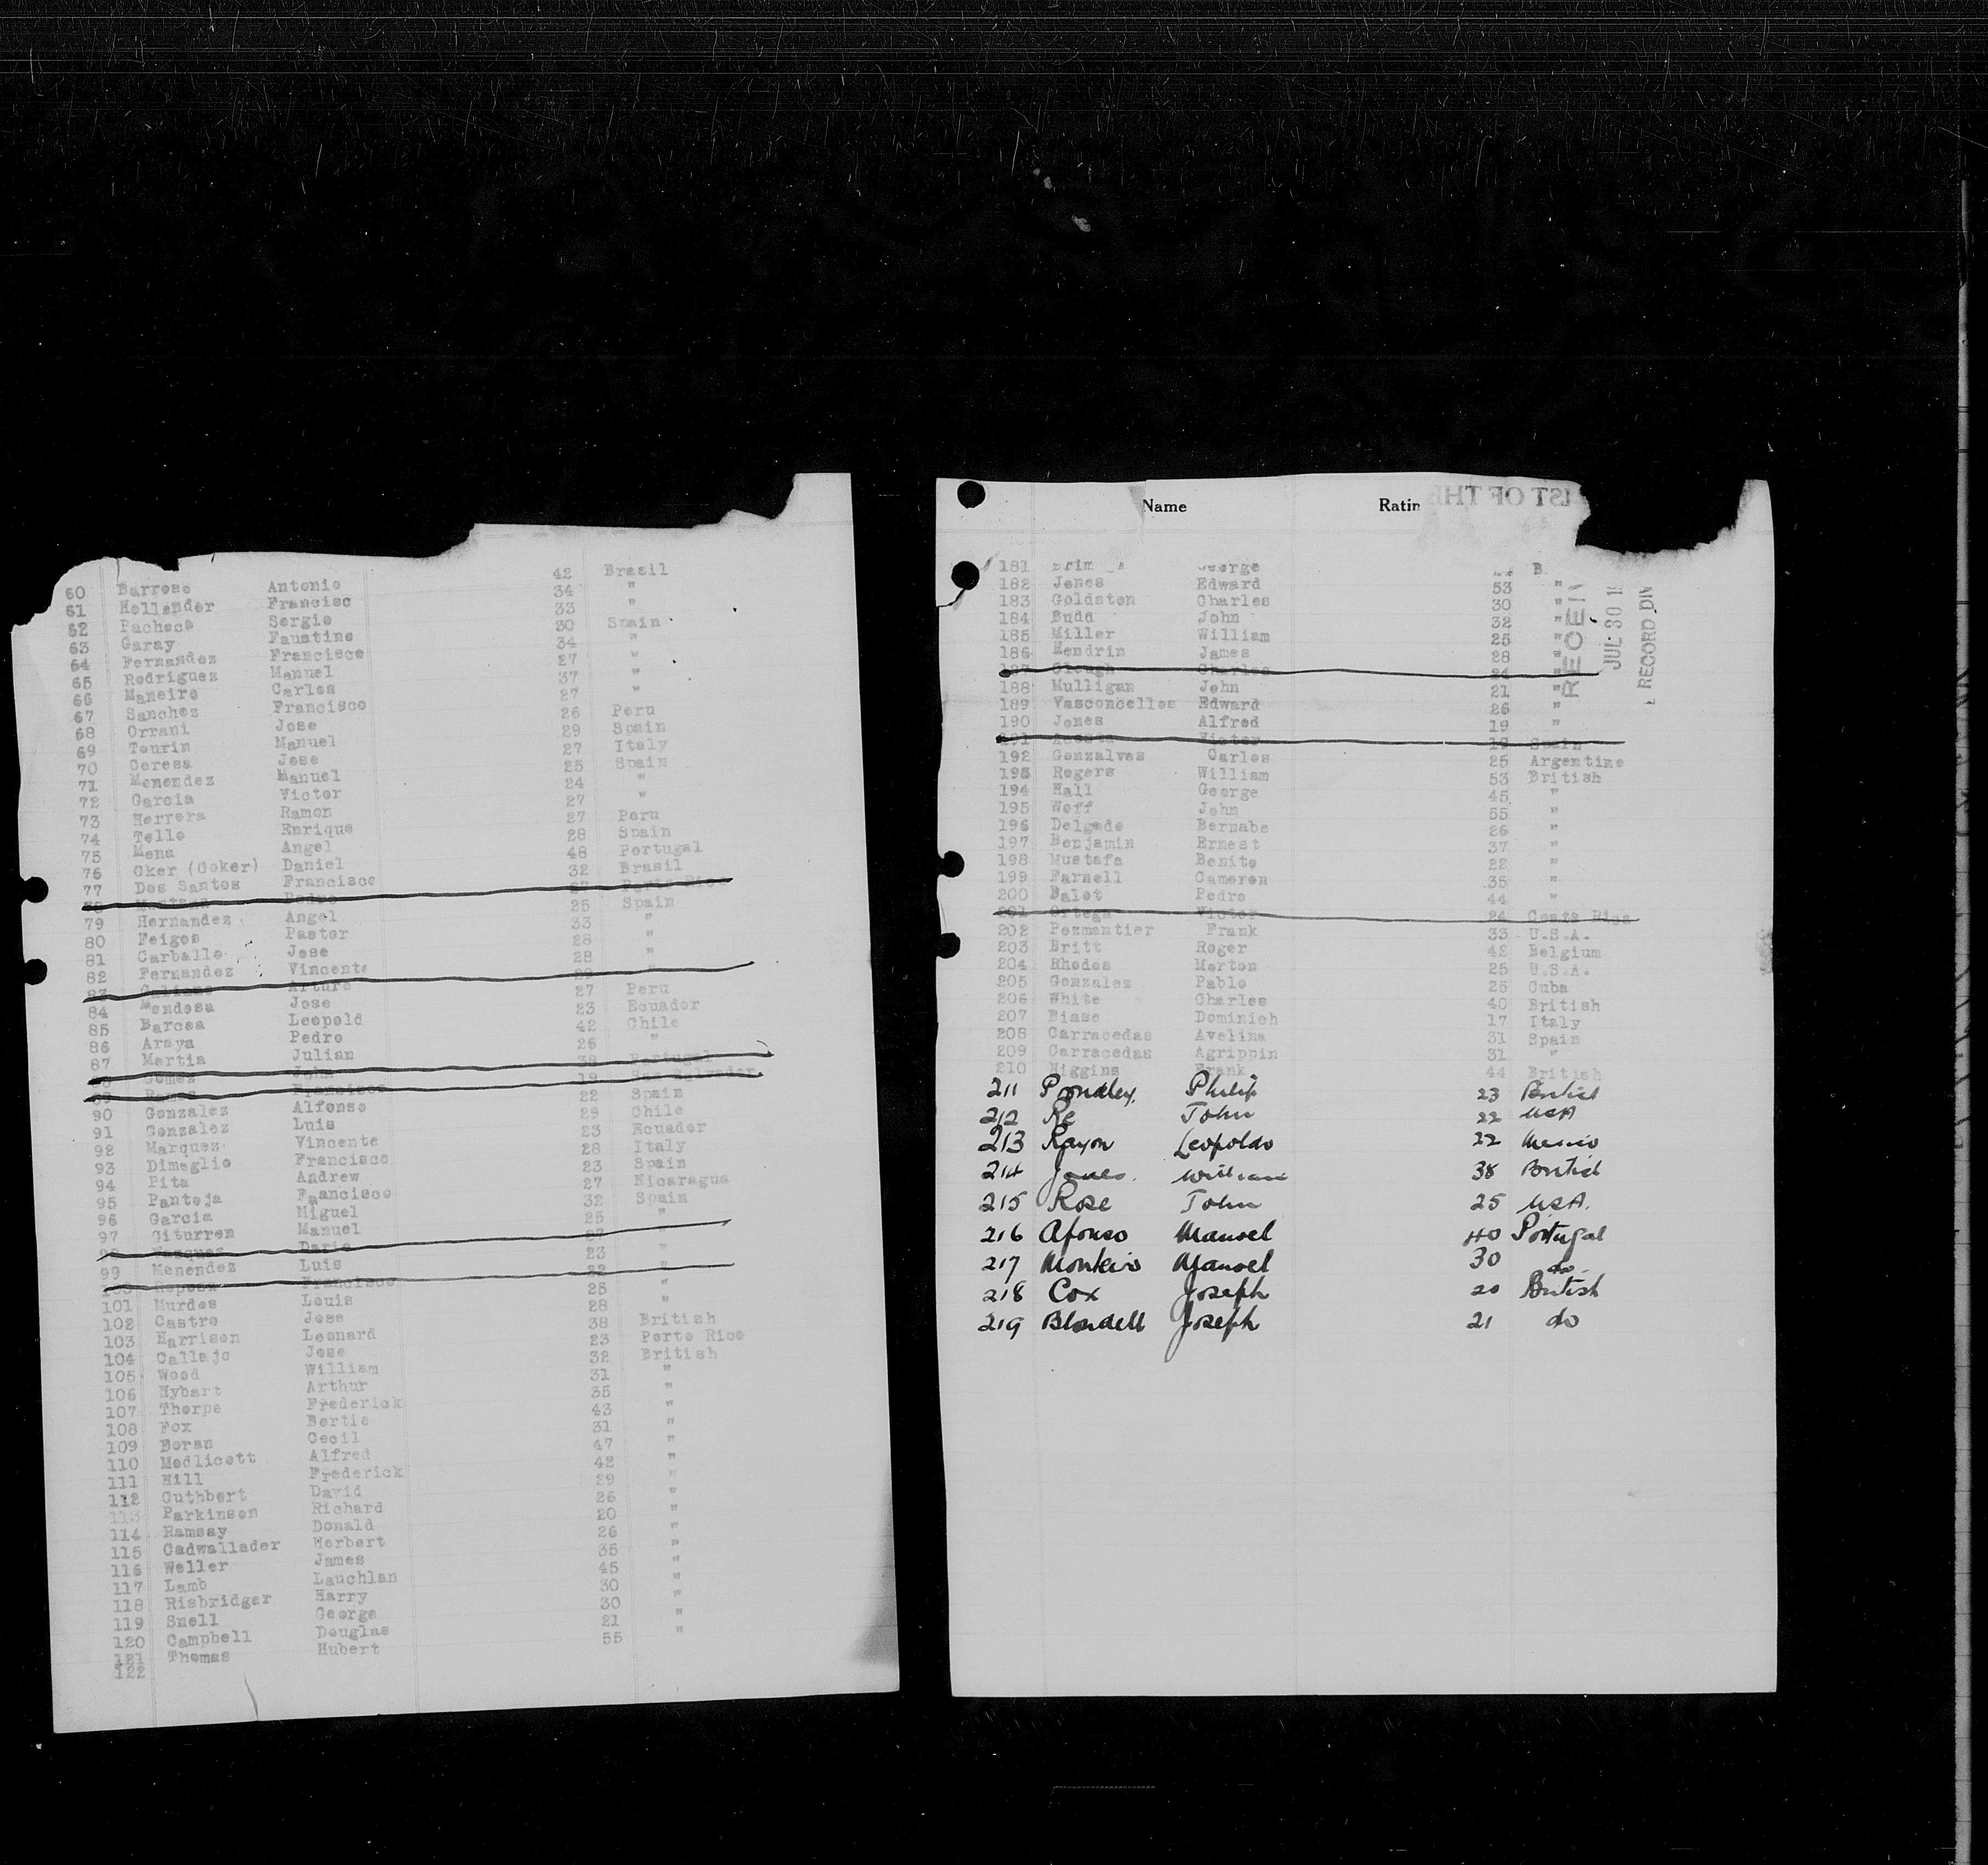 60 Barroso Antonio 42 Brasil
61 Hollander Francisc 34 "
62 Pacheco Sergio 33 "
63 Garay Faustino 30 Spain
64 Fernandez Francisco 34 "
65 Rodriguez Manuel 27 "
66 Maneiro Carlos 37 "
67 Sanchez Francisco 27 "
68 Orrani Jose 26 Peru
69 Tourin Manuel 29 Spain
70 Ceresa Jose 27 Italy
71 Menendez Manuel 25 Spain
72 Garcia Victor 24 "
73 Herrera Ramon 27 "
74 Tello Enrique 27 Peru
75 Mena Angel 28 Spain
76 Oker (Coker) Daniel 48 Portugal
77 Dos Santos Francisco 32 Brasil
78 Pedro 27 Porto Rico
79 Hernandez Angel 25 Spain
80 Feigos Pastor 33 "
81 Carballo Jose 28 "
82 Fernandez Vincente 28 "
83 Arturo 29 "
84 Mendosa Jose 27 Peru
85 Barcoa Leopold 23 Ecuador
86 Araya Pedro 42 Chile
87 Martia Julian 26 "
88 Gomez John 38 Portugal
89 Francisco 19 San Salvador
90 Gonzalez Alfonso 22 Spain
91 Gonzalez Luis 29 Chile
92 Marquez Vincente 23 Ecuador
93 Dimeglio Francisco 28 Italy
94 Pita Andrew 23 Spain
95 Pantoja Faancisco 27 Nicaragua
96 Garcia Miguel 32 Spain
97 Giturren Manuel 25 "
98 Vazquez Dario 27
99 Menendez Luis 23 "
100 Francisco 22 "
101 Murdes Louis 25 "
102 Castro Jose 28 "
103 Harrison Leonard 38 British
104 Callajo Jose 23 Porto Rico
105 Wood William 32 British
106 Hybart Arthur 31 "
107 Thorpe Frederick 35 "
108 Fox Bertie 43 "
109 Doran Cecil 31 "
110 Medlicott Alfred 47 "
111 Hill Frederick 42 "
112 Cuthbert David 29 "
113 Parkinson Richard 26 "
114 Ramsay Donald 20 "
115 Cadwallader Herbert 26 "
116 Weller James 35 "
117 Lamb Lauchlan 45 "
118 Risbridger Harry 30 "
119 Snell George 30 "
120 Campbell Douglas 21 "
121 Thomas Hubert 55 "
122
Name Ratin
IST OF THE
RECEIV
JUL 30 19
RECORD DIV
181 George B
182 Jones Edward 53 "
183 Goldston Charles 30 "
184 Budd John 32 "
185 Miller William 25 "
186 Hendrin James 28 "
187 Clough Charles 24 "
188 Mulligan John 21 "
189 Vasconcellos Edward 26 "
190 Jones Alfred 19 "
191 Acosta Victor 19 Spain
192 Gonzalves Carlos 25 Argentine
193 Rogers William 53 British
194 Hall George 45 "
195 Woff John 55 "
196 Delgado Bernabe 26 "
197 Benjamin Ernest 37 "
198 Mustafa Benito 22 "
199 Farnell Cameron 35 "
200 Balot Pedro 44 "
201 Ortega Victor 24 Costa Rica
202 Pozmantier Frank 33 U.S.A.
203 Britt Roger 42 Belgium
204 Rhodes Morton 25 U.S.A.
205 Gonzalez Pablo 25 Cuba
206 White Charles 40 British
207 Biase Dominich 17 Italy
208 Carracedas Avelina 31 Spain
209 Carracedas Agrippin 31 "
210 Higgins Frank 44 British
211 Philip 23 British
212 Re John 22 USA
213 Rayon Leopoldo 22 Mexico
214 Jones. William 38 British
215 Rose John 25 USA.
216 Afonso Manoel 40 Portugal
217 Monteiro Manoel 30 do.
218 Cox Joseph 20 British
219 Blondell Joseph 21 do